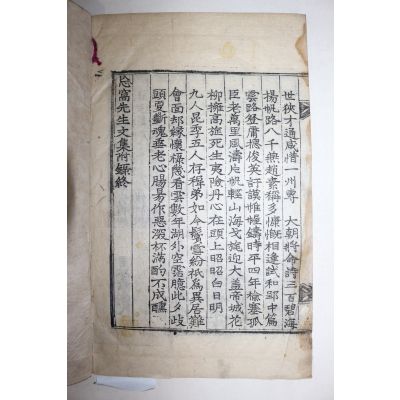 世狹才通咸惜一州專 大朝將命詩三百碧海
揚帆路八千無趙素稱多慷慨相逢試和郢中篇
雲路登庸摠俊英訏謨帷幄鑄時平四年檢塞孤
臣老萬里風濤片帆輕山海戈旄迎大盖帝城花
柳擁高旌死生夷險丹心在頭上昭昭白日明
九人昆季五人存稚弟如今鬢雪紛秖爲異居難
會面却緣懷橾幾看雲數年湖外空霑臆此夕歧
頭更斷魂垂老心腸易作惡深杯滿酌不成醺
忍窩先生文集附錄終